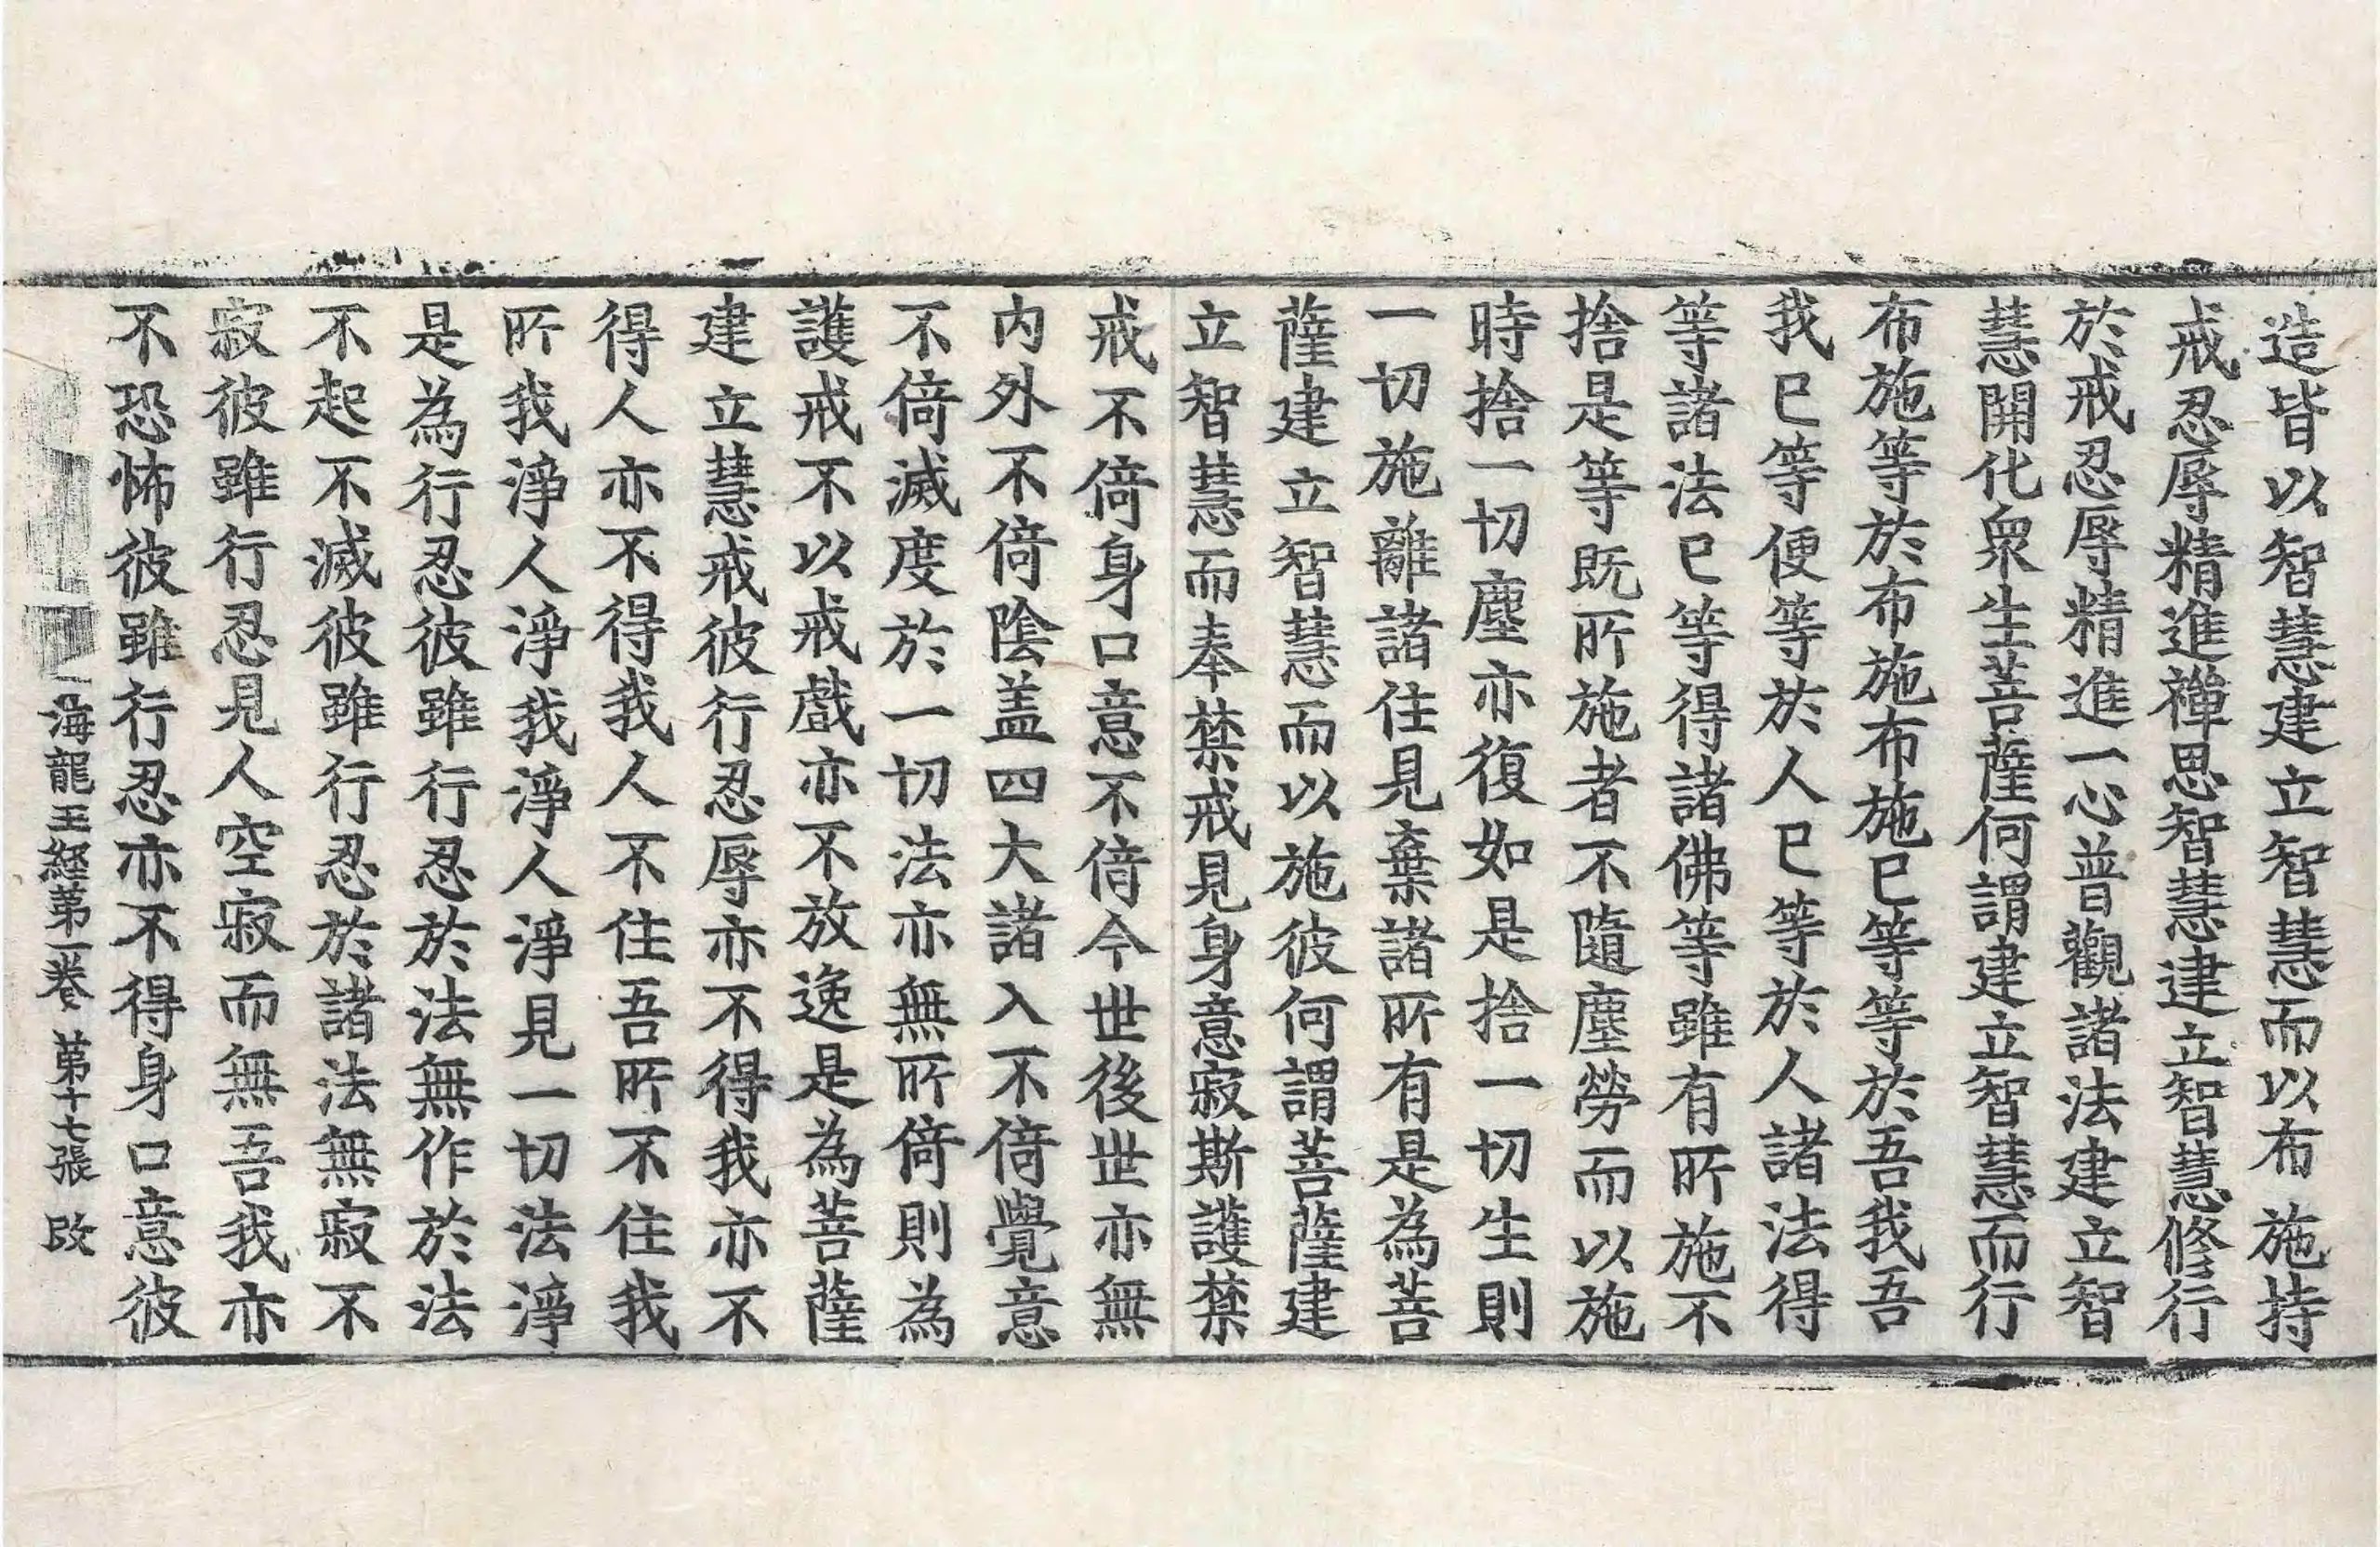 造皆以智慧建立智慧而以布施持
戒忍辱精進禪思智慧建立智慧修行
於戒忍辱精進一心普觀諸法建立智
慧開化衆生菩薩何謂建立智慧而行
布施等於布施布施已等等於吾我吾
我已等便等於人已等於人諸法得
等諸法已等得諸佛等雖有所施不
捨是等既所施者不隨塵勞而以施
時捨一切塵亦復如是捨一切生則
一切施離諸住見棄諸所有是為菩
薩建立智慧而以施彼何謂菩薩建
立智慧而奉禁戒見身意寂斯護禁
戒不倚身口意不倚今世後世亦無
内外不倚陰盖四大諸入不倚覺意
不倚滅度於一切法亦無所倚則為
護戒不以戒戲亦不放逸是為菩薩
建立慧戒彼行忍辱亦不得我亦不
得人亦不得我人不住吾所不住我
所我淨人淨我淨人淨見一切法淨
是為行忍彼雖行忍於法無作於法
不起不滅彼雖行忍於諸法無寂不
寂彼雖行忍見人空寂而無吾我亦
不恐怖彼雖行忍亦不得身口意彼
海龍王經第一卷 第十七張 改